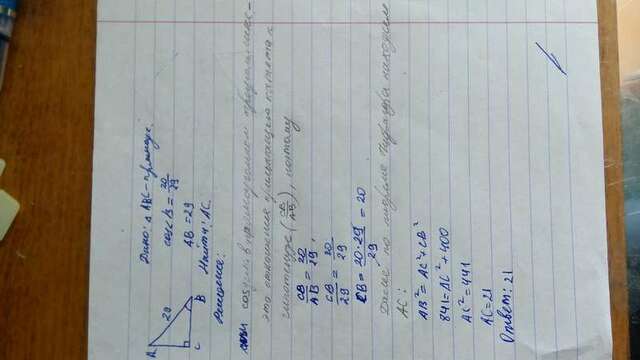 Дано: △ABC - прямоуг.
cos∠B = 20/29
AB = 29
Найти: AC.
A
29
C
B
Решение:
косинус в прямоугольном треугольнике -
это отношение прилежащего катета к
гипотенузе (CB/AB), поэтому
CB/AB = 20/29,
CB/29 = 20/29
CB = 20·29/29 = 20
Далее по теореме Пифагора находим
AC:
AB² = AC² + CB²
841 = AC² + 400
AC² = 441
AC = 21
Ответ: 21